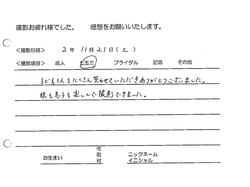 撮影お疲れ様でした。 感想をお願いいたします。
<撮影日時> 2年 11月21日(土)
<撮影項目> 成人 七五三 ブライダル 記念 その他
子ども3人をたくさん笑わせていただきありがとうございました。
娘も息子も楽しんで撮影できました。
お住まい 市 町 村 ニックネーム イニシャル